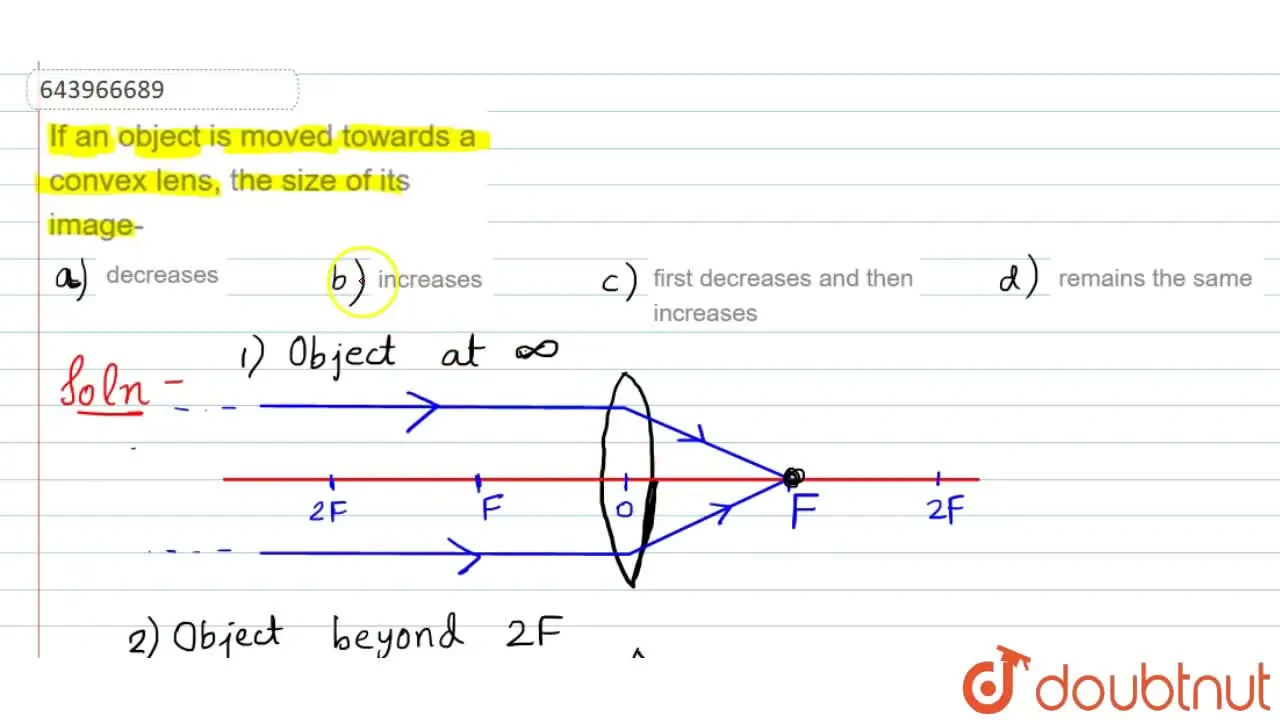 643966689
If an object is moved towards a
convex lens, the size of its
image-
a) decreases b) increases c) first decreases and then increases d) remains the same
1) Object at ∞
Soln -
2F F O F 2F
2) Object beyond 2F
doubtnut